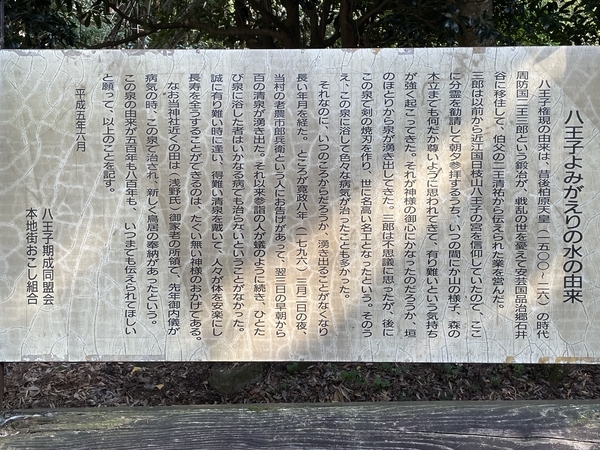 八王子よみがえりの水の由来
八王子権現の由来は、昔後柏原天皇(一五〇〇~二六)の時代
周防国二王三郎という鍛冶が、戦乱の世を憂えて安芸国品治郷石井
谷に移住して、伯父の二王清祐から伝えられた業を営んだ。
三郎は以前から近江国日枝山八王子の宮を信仰していたので、ここ
に分霊を勧請して朝夕参拝するうち、いつの間にか山の様子、森の
木立までも何だか尊いようにに思われてきて、有り難いという気持ち
が強く起こってきた。それが神様の御心にかなったのだろうか、垣
のほとりから泉が湧き出してきた。三郎は不思議に思ったが、後に
この泉で剣の焼刃を作り、世に名高い名工となったという。そのう
え、この泉に浴して色々な病気が治ったことも多かった。
それなのに、いつのころからだろうか、湧き出ることがなくなり
長い年月を経た。ところが寛政八年(一七九六)三月二日の夜、
当村の老農市郎兵衛という人にお告げがあって、翌三日の早朝から
百の清泉が湧き出た。それ以来参詣の人が蟻のように続き、ひとた
び泉に浴した者はいかなる病でも治らないということがなかった。
誠に有り難い時に逢い、得難い清泉を戴いて、人々が体を安楽にし
長寿を全うすることができるのは、たぐい無い神様のおかげである。
なお当神社近くの田は(浅野氏)御家老の所領で、先年御内儀が
病気の時、この泉で治され、新しく鳥居の奉納があったという。
この泉の由来が五百年も八百年も、いつまでも伝えられてほしい
と願って、以上のことを記す。
平成五年八月
八王子期成同盟会
本地街おこし組合